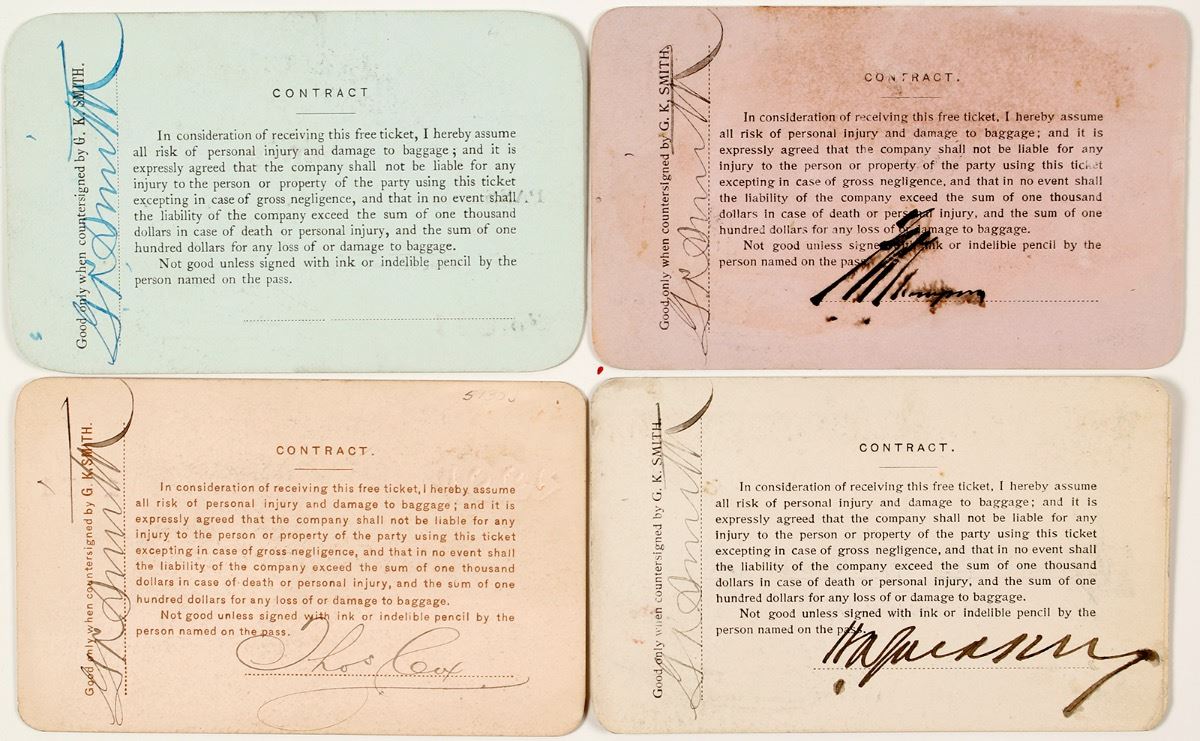 Good only when countersigned by G. K. SMITH.
G K Smith
CONTRACT
In consideration of receiving this free ticket, I hereby assume
all risk of personal injury and damage to baggage; and it is
expressly agreed that the company shall not be liable for any
injury to the person or property of the party using this ticket
excepting in case of gross negligence, and that in no event shall
the liability of the company exceed the sum of one thousand
dollars in case of death or personal injury, and the sum of one
hundred dollars for any loss of or damage to baggage.
Not good unless signed with ink or indelible pencil by the
person named on the pass.
Good only when countersigned by G. K. SMITH.
G K Smith
CONTRACT.
In consideration of receiving this free ticket, I hereby assume
all risk of personal injury and damage to baggage; and it is
expressly agreed that the company shall not be liable for any
injury to the person or property of the party using this ticket
excepting in case of gross negligence, and that in no event shall
the liability of the company exceed the sum of one thousand
dollars in case of death or personal injury, and the sum of one
hundred dollars for any loss of or damage to baggage.
Not good unless signed with ink or indelible pencil by the
person named on the pass.
Good only when countersigned by G. K. SMITH.
G K Smith
CONTRACT.
In consideration of receiving this free ticket, I hereby assume
all risk of personal injury and damage to baggage; and it is
expressly agreed that the company shall not be liable for any
injury to the person or property of the party using this ticket
excepting in case of gross negligence, and that in no event shall
the liability of the company exceed the sum of one thousand
dollars in case of death or personal injury, and the sum of one
hundred dollars for any loss of or damage to baggage.
Not good unless signed with ink or indelible pencil by the
person named on the pass.
Thos Cox
Good only when countersigned by G. K. SMITH.
G K Smith
CONTRACT.
In consideration of receiving this free ticket, I hereby assume
all risk of personal injury and damage to baggage; and it is
expressly agreed that the company shall not be liable for any
injury to the person or property of the party using this ticket
excepting in case of gross negligence, and that in no event shall
the liability of the company exceed the sum of one thousand
dollars in case of death or personal injury, and the sum of one
hundred dollars for any loss of or damage to baggage.
Not good unless signed with ink or indelible pencil by the
person named on the pass.